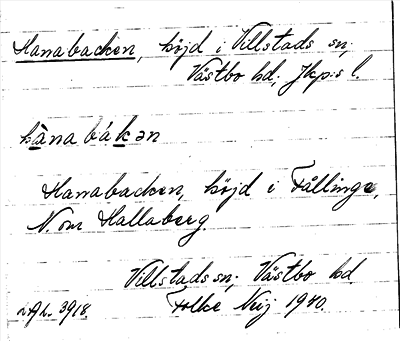 Hanabacken, höjd i Villstads sn;
Västbo hd, Jkp:s l.
hàna bákən
Hanabacken, höjd i Fållinge,
N. om Hallaberg.
Villstads sn; Västbo hd.
Folke
1940.
3918.